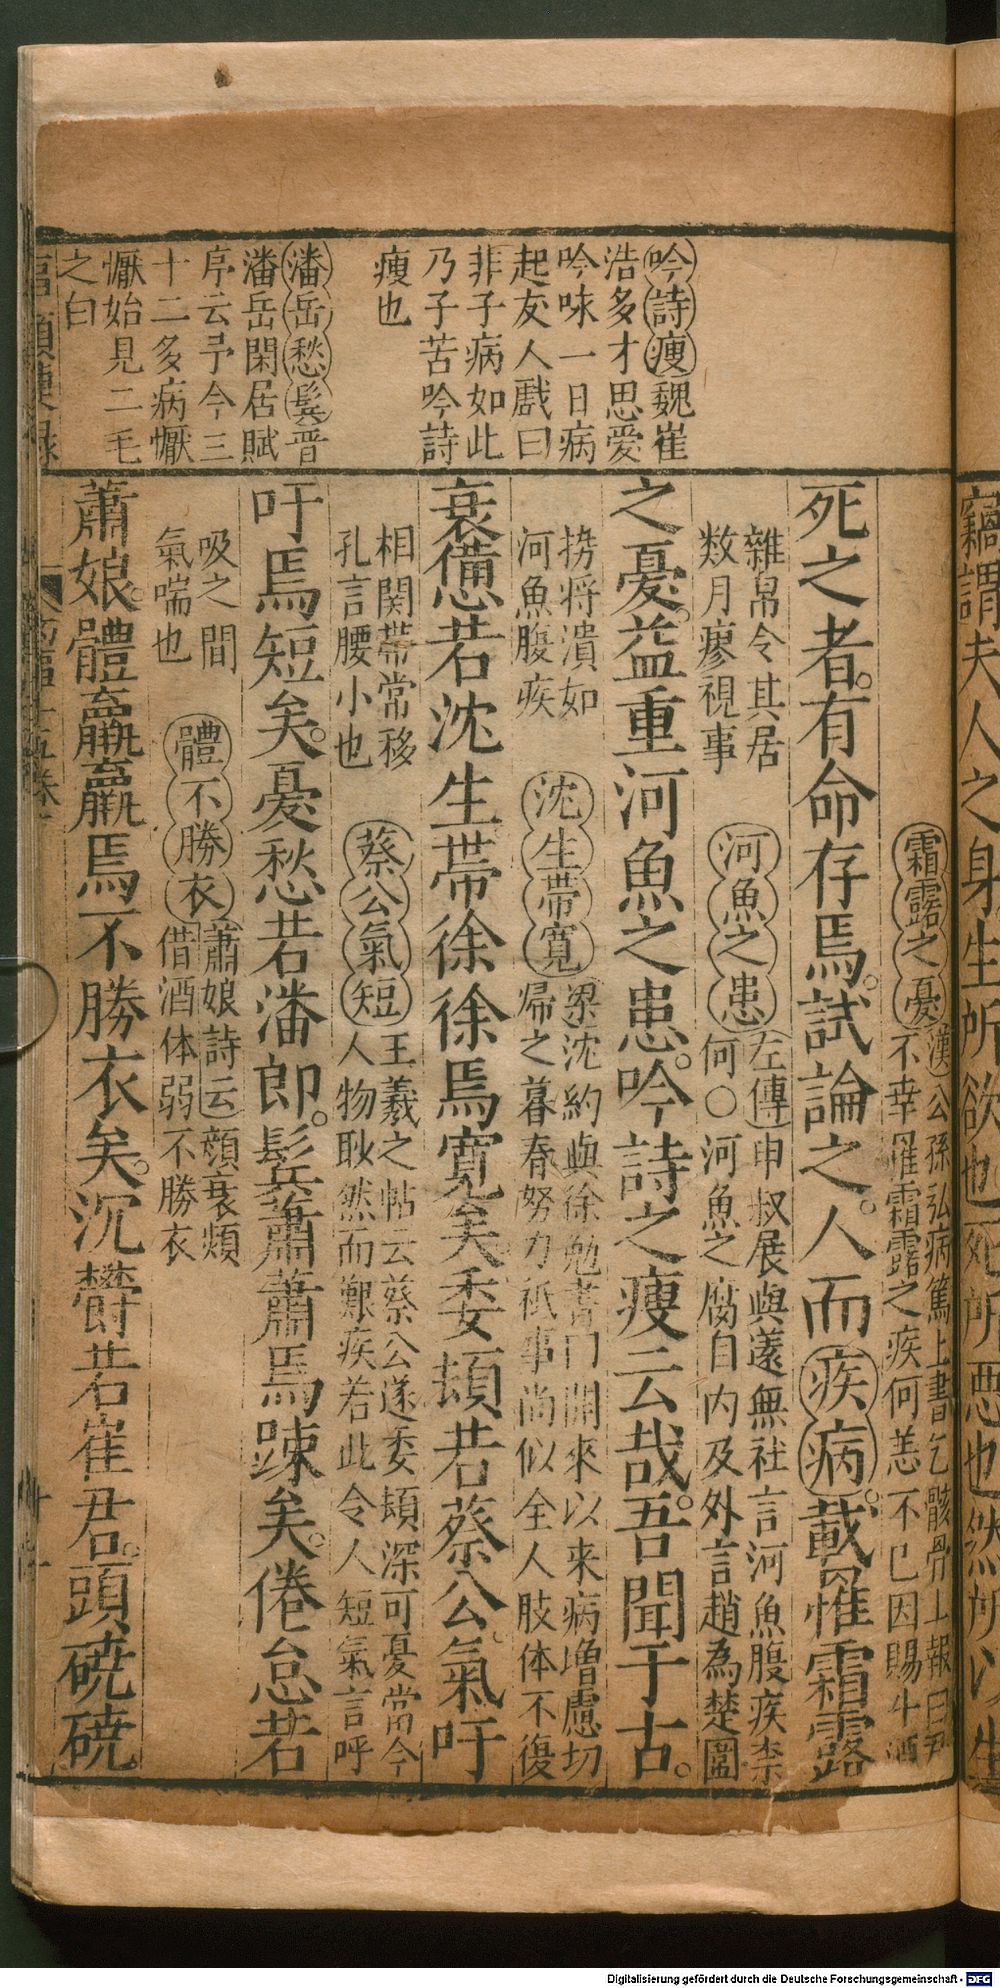 吟詩瘦魏崔
浩多才思愛
吟咏一日病
起友人戲曰
非子病如此
乃子苦吟詩
瘦也
潘岳愁鬂晋
潘岳閑居賦
序云予今三
十二多病懨
懨始見二毛
之曰
竊謂夫人之身生所欲也死所惡也然所以生
霜露之憂漢公孫弘病篤上書乞骸骨上報曰君
不幸罹霜露之疾何恙不已因賜牛酒
死之者有命存焉試論之人而疾病載罹霜露
雜帛令其居
数月瘳視事
河魚之患左傳申叔展與蘧無社言河魚腹疾柰
何○河魚之腐自内及外言趙為楚圍
之憂益重河魚之患吟詩之瘦云哉吾聞于古
撈将潰如
河魚腹疾
沈生帯寛梁沈約與徐勉書曰開來以来病增慮切
帰之暮春努力祇事尚似全人肢体不復
衰憊若沈生帯徐徐焉寛矣委頓若蔡公氣吁
相関帯常移
孔言腰小也
蔡公氣短王羲之帖云蔡公遂委頓深可憂當今
人物耿然而艱疾若此令人短氣言呼
吁焉短矣憂愁若潘郎髩蕭蕭焉踈矣倦怠若
吸之間
氣喘也
體不勝衣蕭娘詩云顔衰頰
借酒体弱不勝衣
蕭娘體羸羸焉不勝衣矣沉欝若崔君頭磽磽
Digitalisierung gefördert durch die Deutsche Forschungsgemeinschaft - DFG